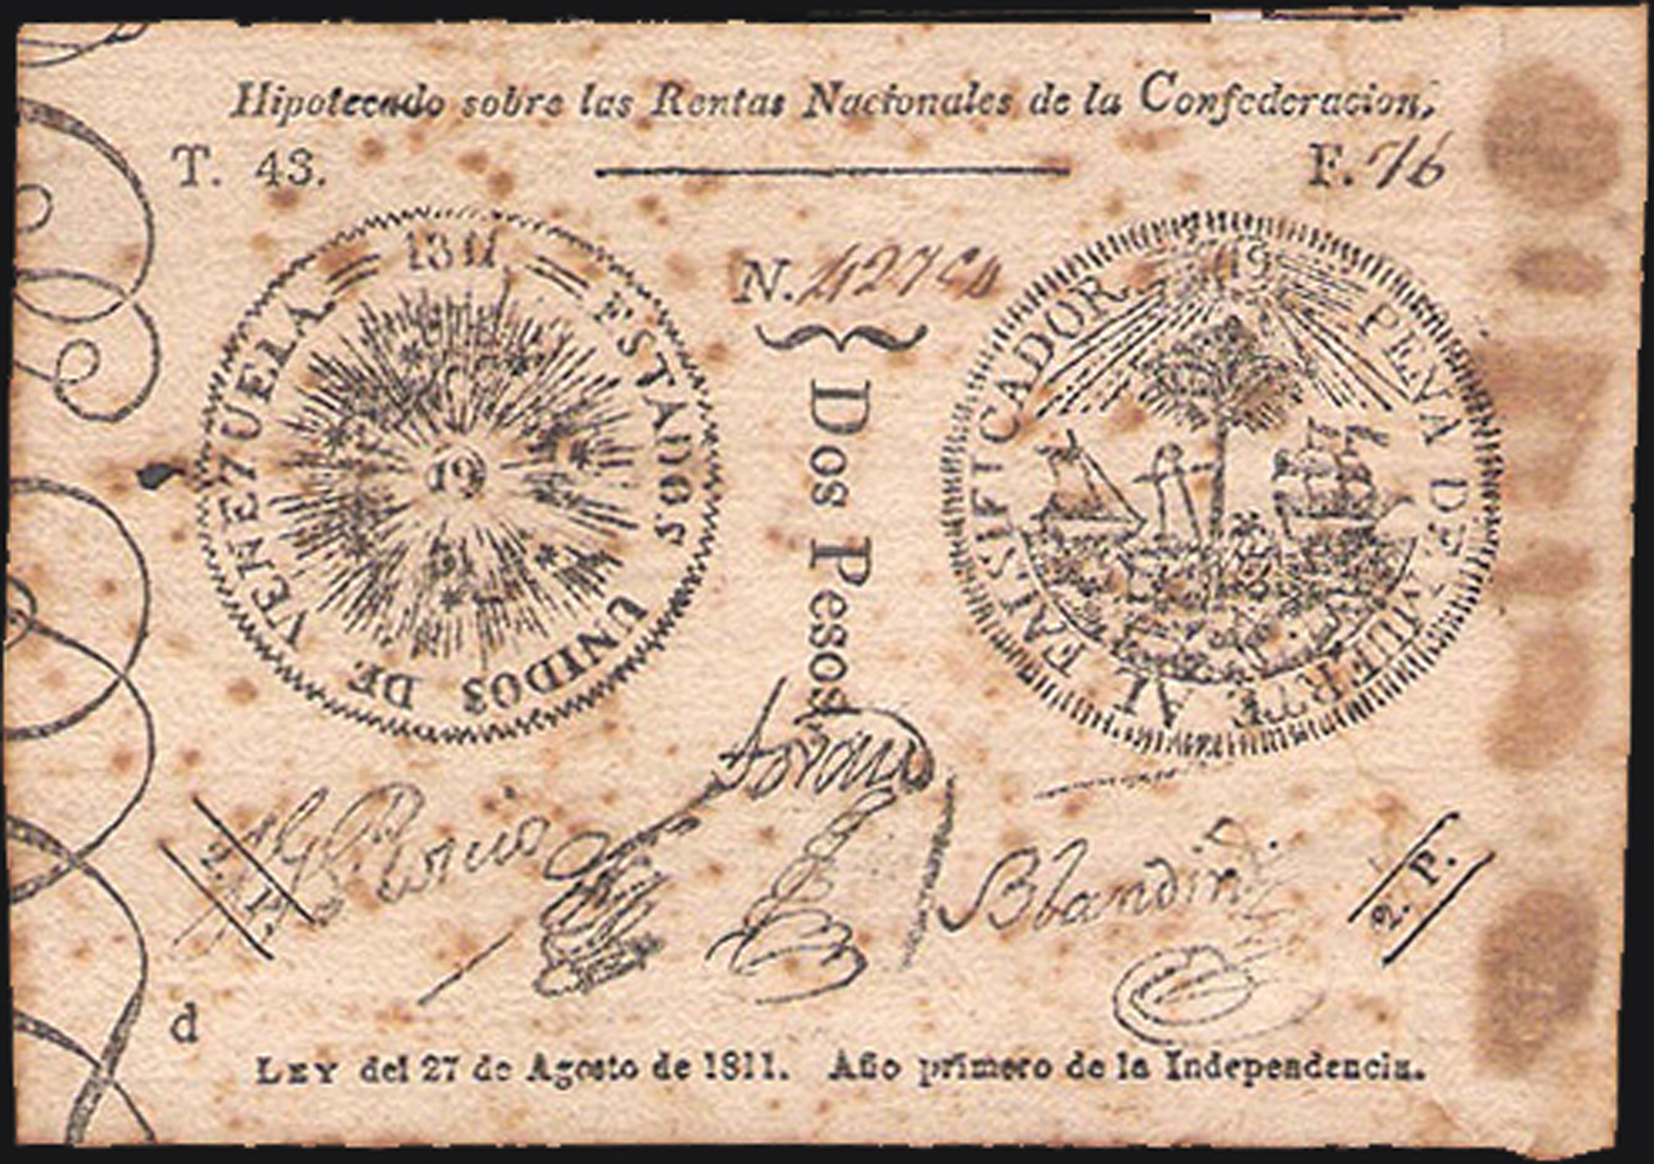 Hipotecado sobre las Rentas Nacionales de la Confederacion,
T. 43.
F. 76
1811 ESTADOS UNIDOS DE VENEZUELA
19
N.
Dos Pesos
19 PENA DE MUERTE AL FALSIFICADOR
Blandin
2. P.
2. P.
d
LEY del 27 de Agosto de 1811. Año primero de la Independencia.